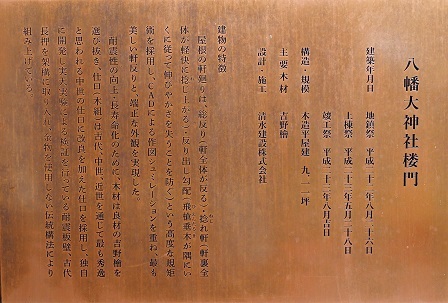 八幡大神社楼門
建築年月日
地鎮祭 平成二十一年八月二十六日
上棟祭 平成二十三年五月二十八日
竣工祭 平成二十三年八月吉日
構造・規模 木造平屋建 九.一一坪
主要木材 吉野檜
設計・施工 清水建設株式会社
建物の特徴
屋根の軒廻りは、総反り(軒全体が反る)・捻れ軒(軒裏全
体が軽快に捻じ上がる)・反り出し勾配(飛檐垂木が隅にい
くに従って伸びやかさを失うことを防ぐ)という高度な規矩
術を採用し、CADによる作図シュミレーションを重ね、最も
美しい軒反りと、端正な外観を実現した
耐震性の向上、長寿命化のために、木材は良材の吉野檜を
選び抜き、仕口・木組は古代、中世、近世を通じて最も秀逸
と思われる中世の仕口に改良を加えた仕口を採用し、独自
に開発し実大実験による検証を行っている耐震板壁、古代
長押を架構に取り入れ、金物を使用しない伝統構法により
組み上げている。